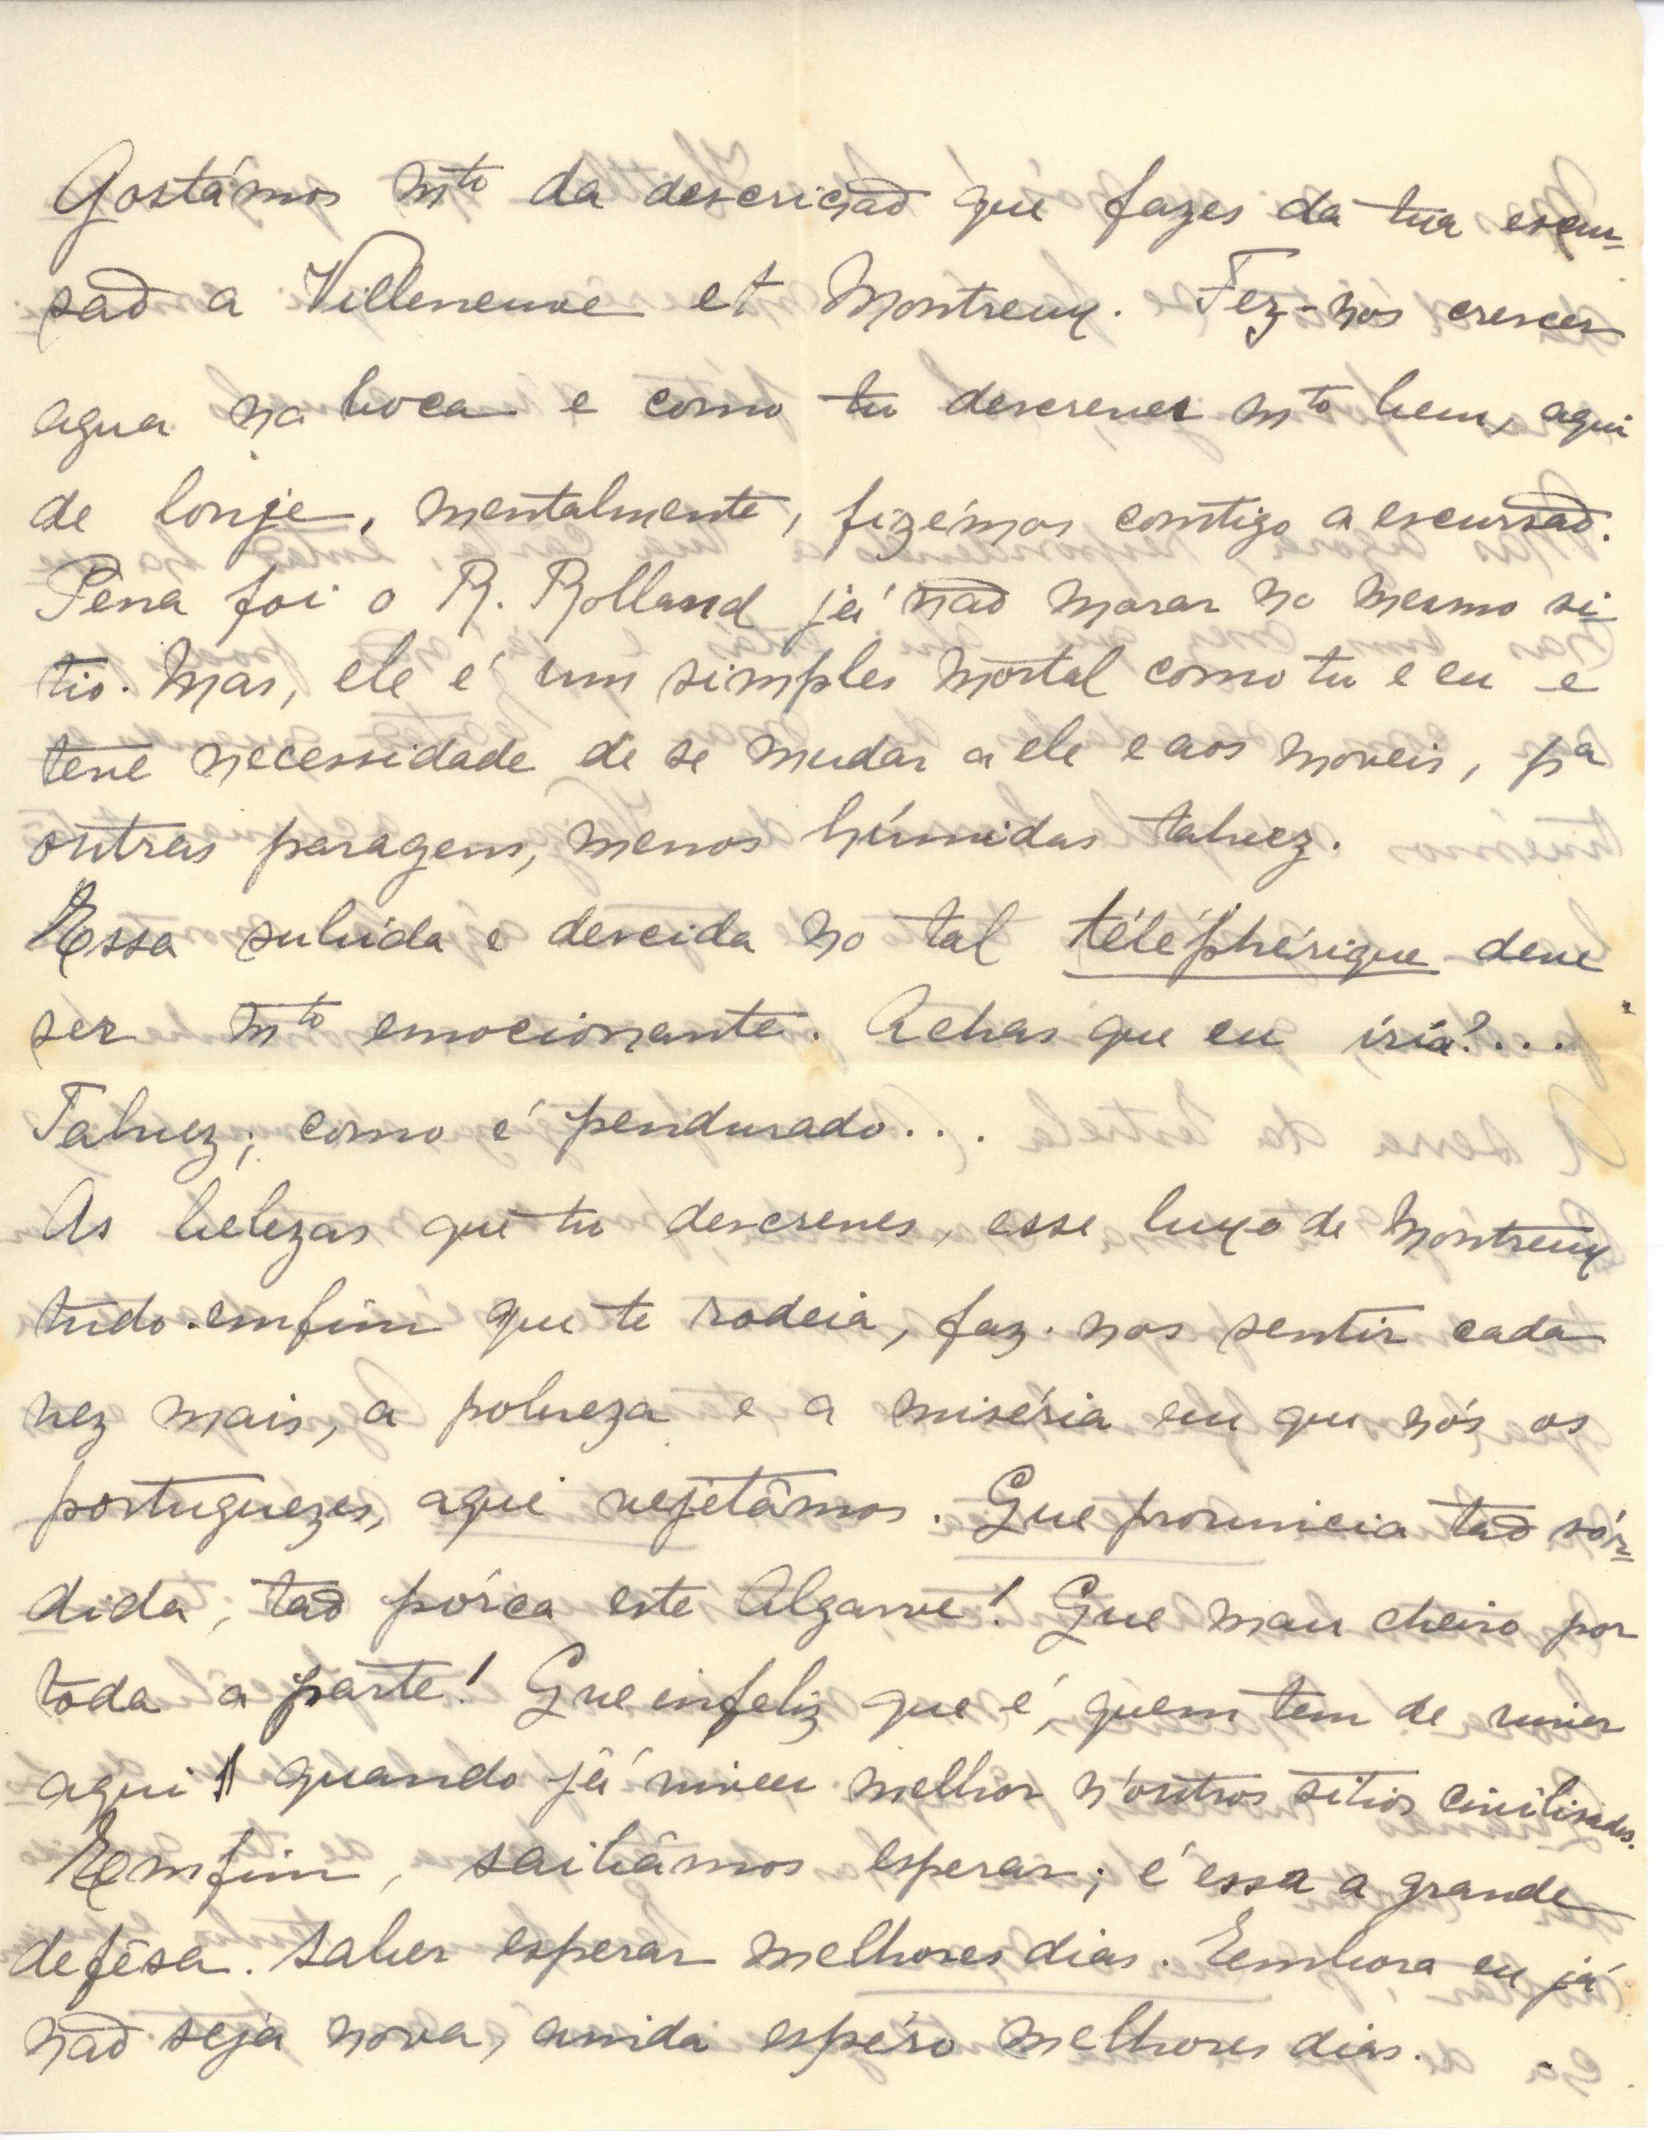 Gostámos mto da descrição que fazes da tua escur-
são a Villeneuve et Montreux. Fez-nos crescer
agua na boca e como tu descreves mto bem, aqui
de lonje, mentalmente, fizémos comtigo a escursão.
Pena foi o R. Rolland já não morar no mesmo si-
tio. Mas, ele é um simples mortal como tu e eu e
teve necessidade de se mudar a ele e aos moveis, pa
outras paragens, menos húmidas talvez.
Essa subida e descida no tal téléphérique deve
ser mto emocionante. Achas que eu iria?...
Talvez; como é pendurado...
As belezas que tu descreves, esse luxo de Montreux
tudo emfim que te rodeia, faz-nos sentir cada
vez mais, a pobreza e a miséria em que nós os
portuguezes, aqui vejetâmos. Que provincia tão sór-
dida, tão pórca este Algarve! Que mau cheiro por
toda a parte! Que infeliz que é, quem tem de viver
aqui quando já viveu melhor n'outros sitios civilisados.
Emfim, saibâmos esperar; é essa a grande
defêsa. Saber esperar melhores dias. Embora eu já
não seja nova, ainda espéro melhores dias.